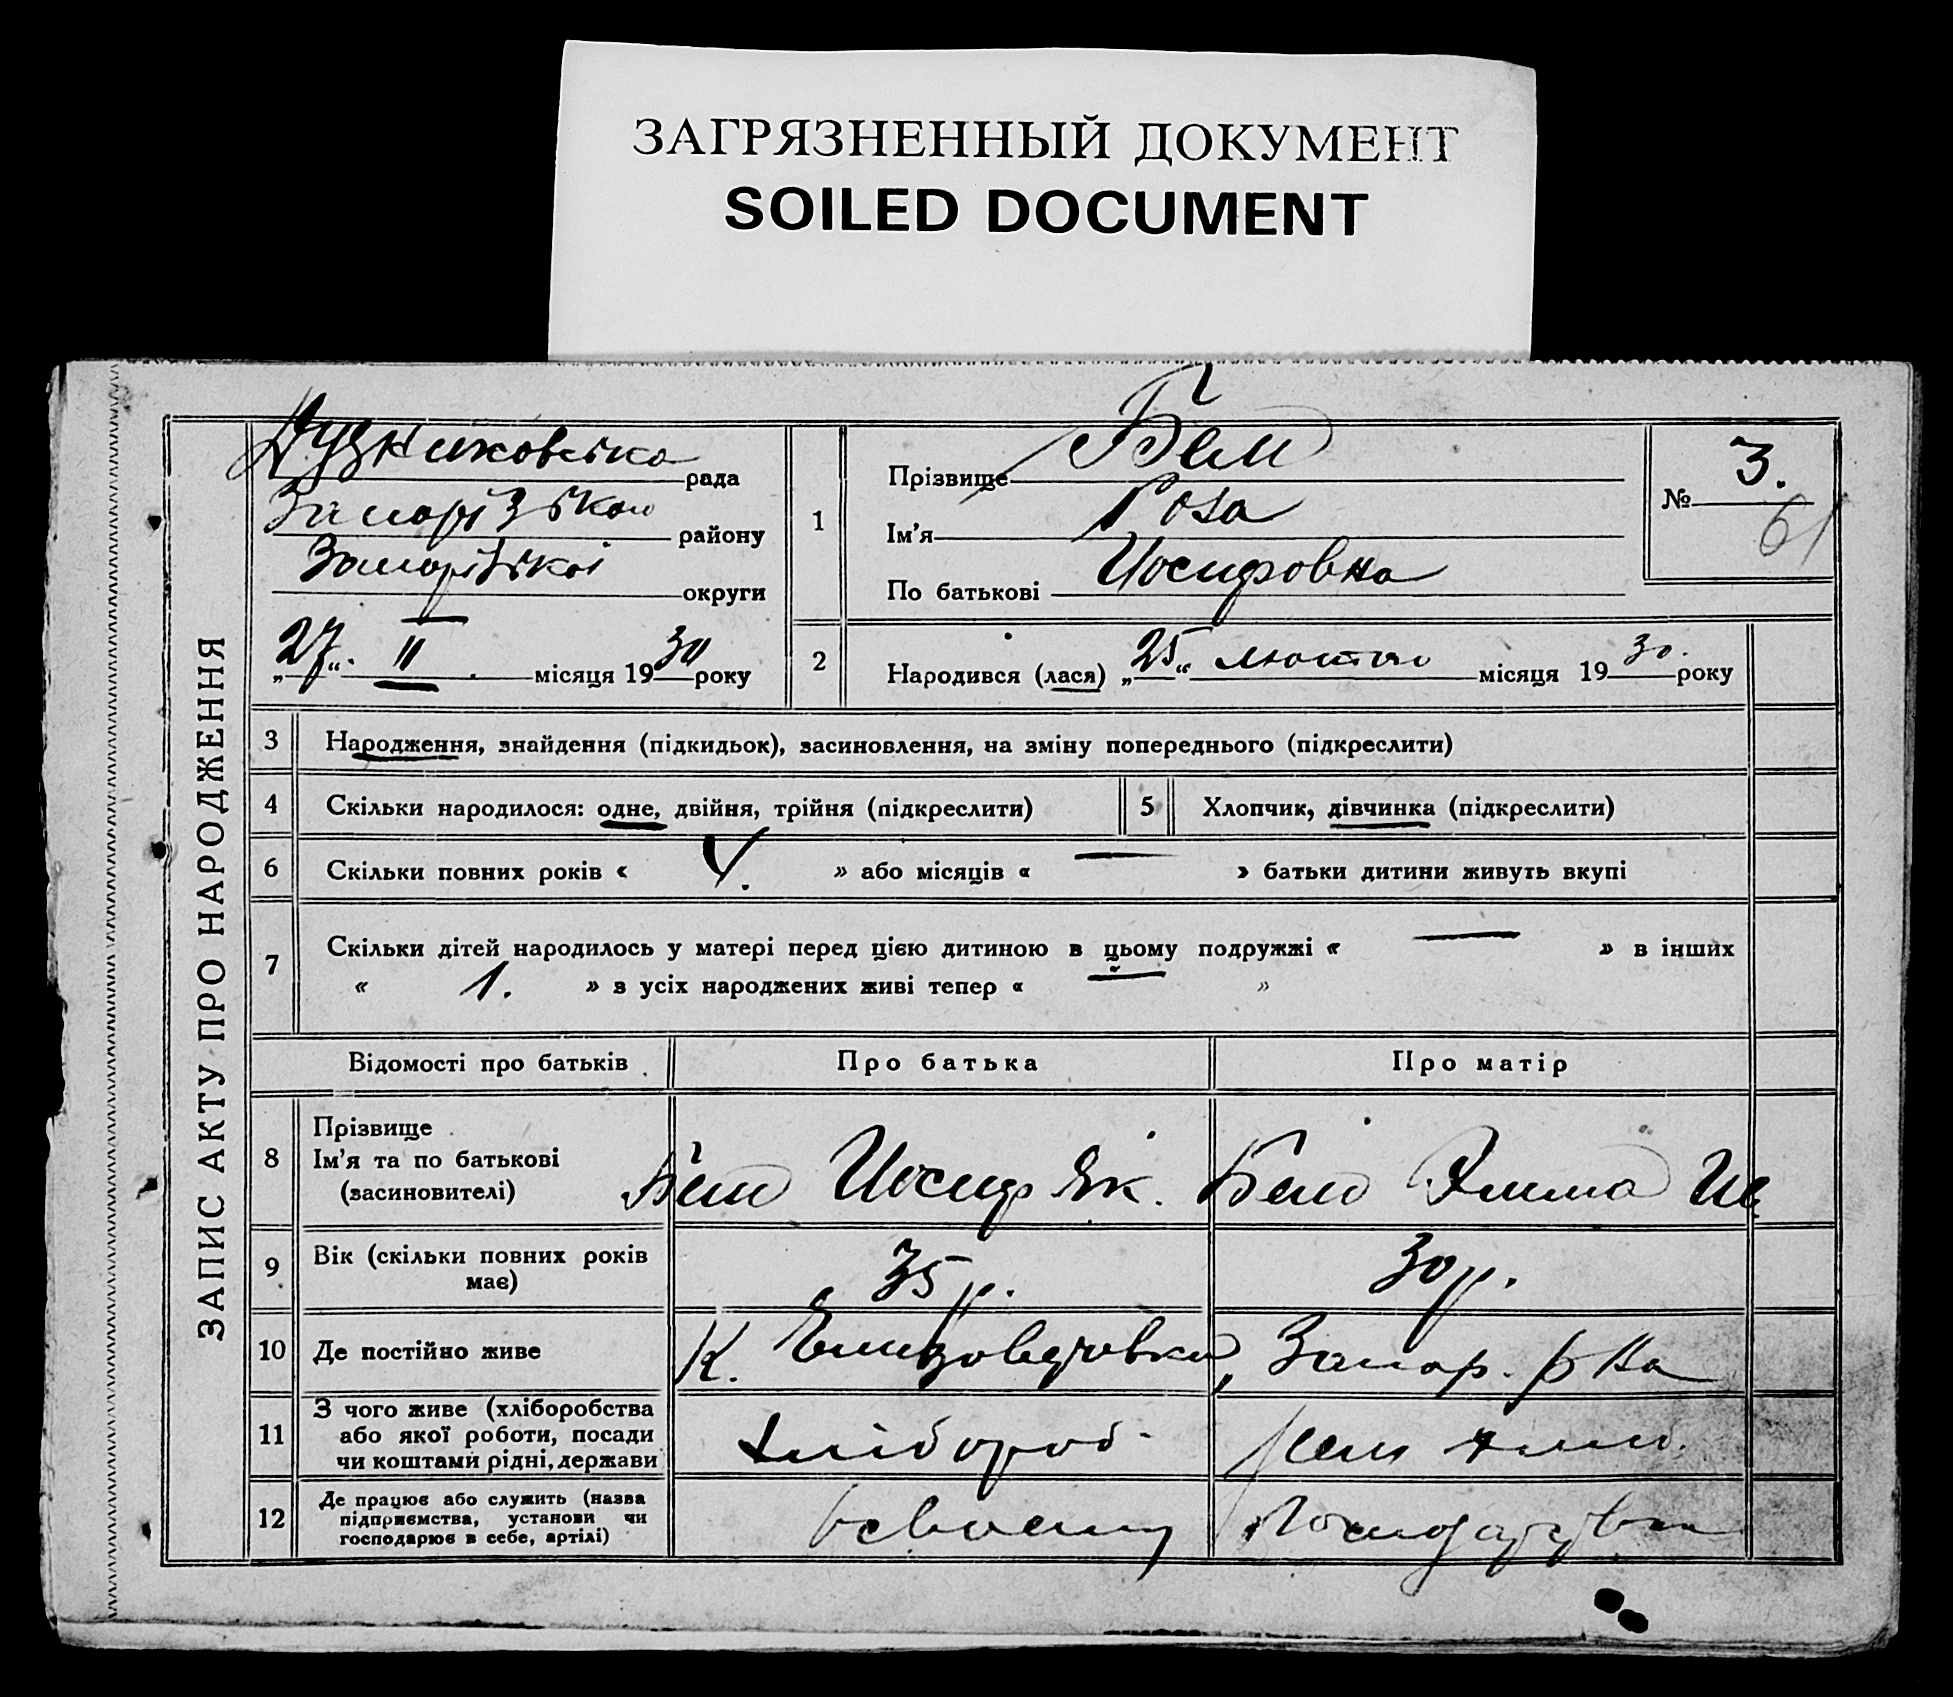 ЗАГРЯЗНЕННЫЙ ДОКУМЕНТ
SOILED DOCUMENT
ЗАПИС АКТУ ПРО НАРОДЖЕННЯ
рада
Запорізького району
Запорізької округи
„27“ II місяця 1930 року
1
Прізвище Бем
Ім’я Роза
По батькові Иосифовна
№ 3.
61
2 Народився (лася) „25“ лютого місяця 1930. року
3 Народження, знайдення (підкидьок), засиновлення, на зміну попереднього (підкреслити)
4 Скільки народилося: одне, двійня, трійня (підкреслити) 5 Хлопчик, дівчинка (підкреслити)
6 Скільки повних років « » або місяців « — » батьки дитини живуть вкупі
7 Скільки дітей народилось у матері перед цією дитиною в цьому подружжі « — » в інших
« 1. » з усіх народжених живі тепер « — »
Відомості про батьків Про батька Про матір
8 Прізвище
Ім’я та по батькові
(засиновителі)
Бем Иосиф Як. Бем Эмма
9 Вік (скільки повних років
має)
35 р. 30 р.
10 Де постійно живе К. Запор. р-на
11 З чого живе (хліборобства
або якої роботи, посади
чи коштами рідні, держави
хлібороб.
12 Де працює або служить (назва
підприємства, установи чи
господарює в себе, артілі)
в своєму господарстві